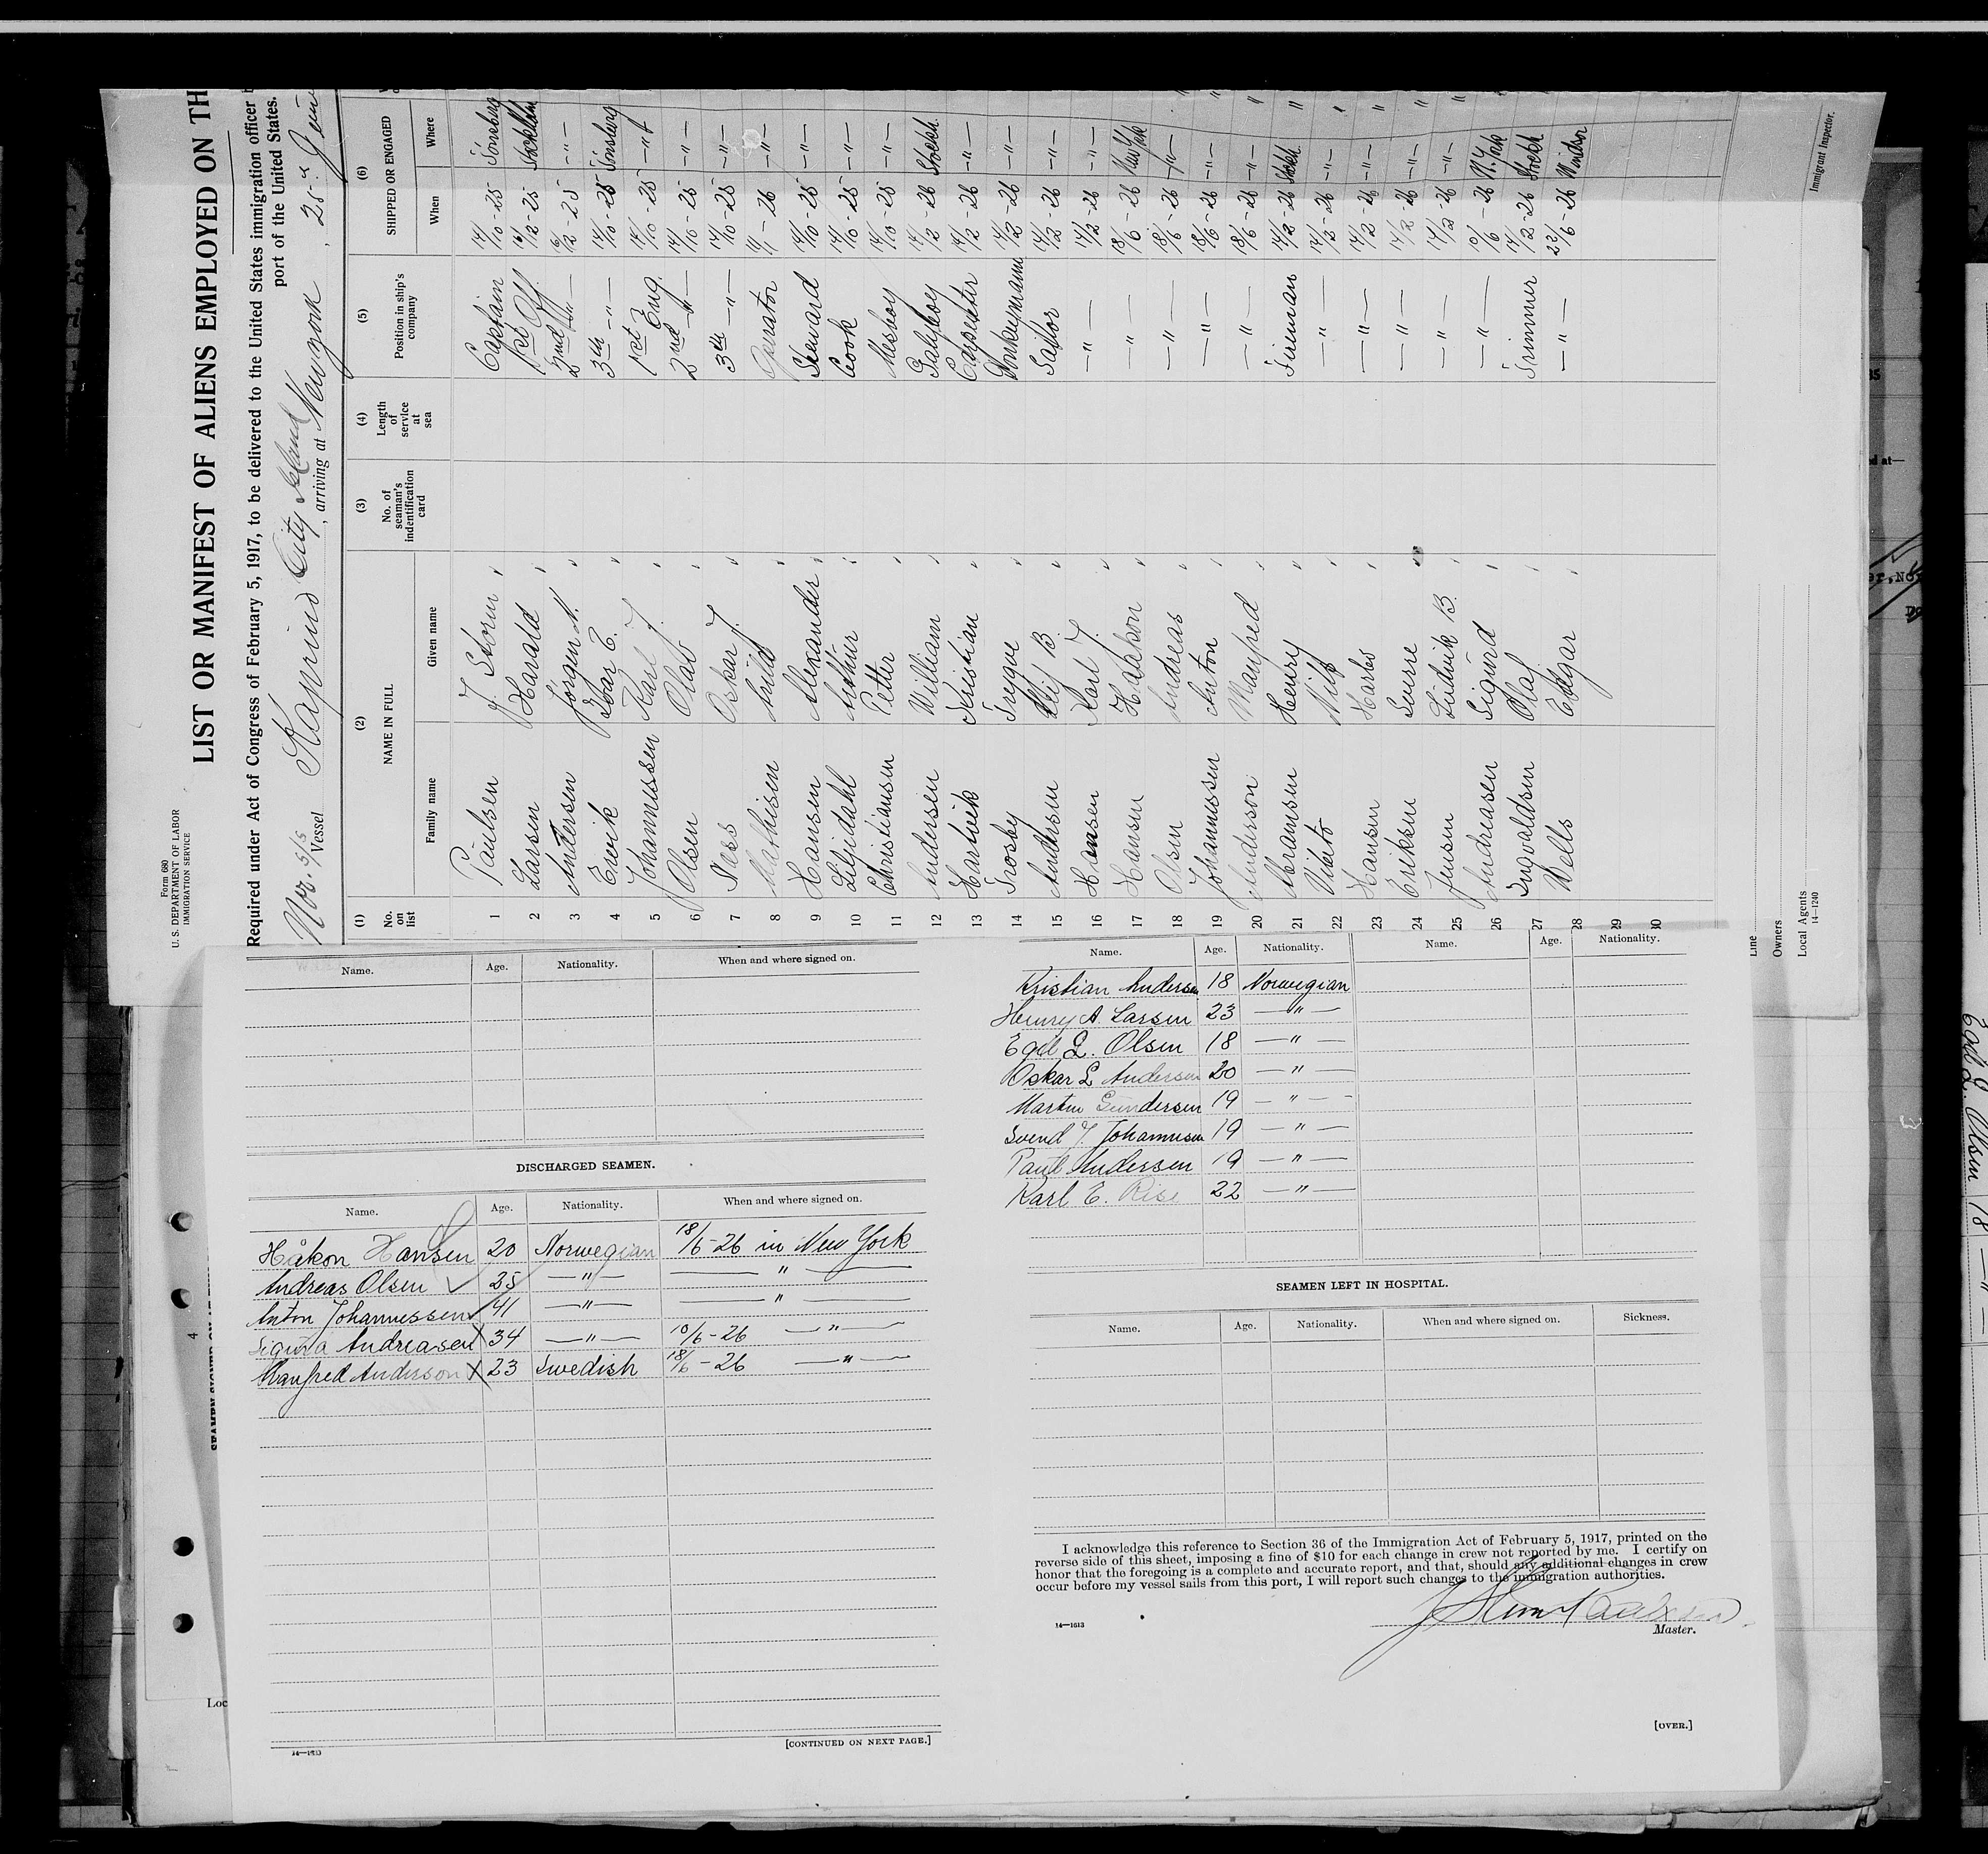 Form 680
U. S. DEPARTMENT OF LABOR
IMMIGRATION SERVICE
LIST OR MANIFEST OF ALIENS EMPLOYED ON TH
Required under Act of Congress of February 5, 1917, to be delivered to the United States immigration officer b
port of the United States.
Nor. S/S
Vessel Kaprino City Island, arriving at Newyork, 25
(1) (2) (3) (4) (5) (6)
No. on list NAME IN FULL No. of seaman's indentification card Length of service at sea Position in ship's company SHIPPED OR ENGAGED
Family name Given name When Where
1 Paulsen J. Storm Captain 14/10-25 Tönsberg
2 Larsen Harald 1st Off. 16/12-25
3 Andersen Jörgen N. 2nd -"- 16/12-25 -"-
4 Ivar E. 3th -"- 14/10-25 Tönsberg
5 Johannessen Karl J. 1st Eng. 14/10-25 -"-
6 Olsen Olav 2nd -"- 14/10-25 -"-
7 Næss Oskar J. 3th -"- 14/10-25 -"-
8 Mathisen Arild Operator -26 -"-
9 Hansen Alexander Steward 14/10-25 -"-
10 Arthur Cook 14/10-25 -"-
11 Christiansen Petter Mesboy 14/10-25 -"-
12 Andersen William Galleyboy 14/2-26
13 Hartvik Kristian Carpenter 14/2-26 -"-
14 Trosby Trygve Donkeymann 14/2-26 -"-
15 Andersen B. Sailor 14/2-26 -"-
16 Hansen Karl J. -"- 14/2-26 -"-
17 Hansen Haakon -"- 18/6-26 New York
18 Olsen Andreas -"- 18/6-26 -"-
19 Johannessen Anton -"- 18/6-26 -"-
20 Anderson Manfred -"- 18/6-26 -"-
21 Abramsen Henry Fireman 14/2-26
22 Nils -"- 14/2-26 -"-
23 Hansen -"- 14/2-26 -"-
24 Eriksen Sverre -"- 14/2-26 -"-
25 Jensen Ludvik B. -"- 14/2-26 -"-
26 Andreasen Sigurd -"- 10/6-26 N. York
27 Ingvaldsen Olaf Trimmer 14/2-26
28 Wells Edgar -"- 22/6-26 Windsor
29
30
Line
Owners
Local Agents
14—1240
Immigrant Inspector.
Name. Age. Nationality. When and where signed on.
DISCHARGED SEAMEN.
Name. Age. Nationality. When and where signed on.
Håkon Hansen 20 Norwegian 18/6-26 in New York
Andreas Olsen 25 -"- -"-
Anton Johannessen 41 -"- -"-
Sigurd Andreasen 34 -"- 10/6-26 -"-
Manfred Anderson 23 Swedish 18/6-26 -"-
14—1613
[CONTINUED ON NEXT PAGE.]
Name. Age. Nationality. Name. Age. Nationality.
Kristian Andersen 18 Norwegian
Henry A. Larsen 23 -"-
Egil L. Olsen 18 -"-
Oskar L Andersen 20 -"-
Martin Gundersen 19 -"-
Svend J. Johannesen 19 -"-
Paul Andersen 19 -"-
Karl E. Rise 22 -"-
SEAMEN LEFT IN HOSPITAL.
Name. Age. Nationality. When and where signed on. Sickness.
I acknowledge this reference to Section 36 of the Immigration Act of February 5, 1917, printed on the
reverse side of this sheet, imposing a fine of $10 for each change in crew not reported by me. I certify on
honor that the foregoing is a complete and accurate report, and that, should any additional changes in crew
occur before my vessel sails from this port, I will report such changes to the immigration authorities.
J Storm Paulsen
Master.
14—1613
[OVER.]
4
Loc
Egil L. Olsen 18 -"-